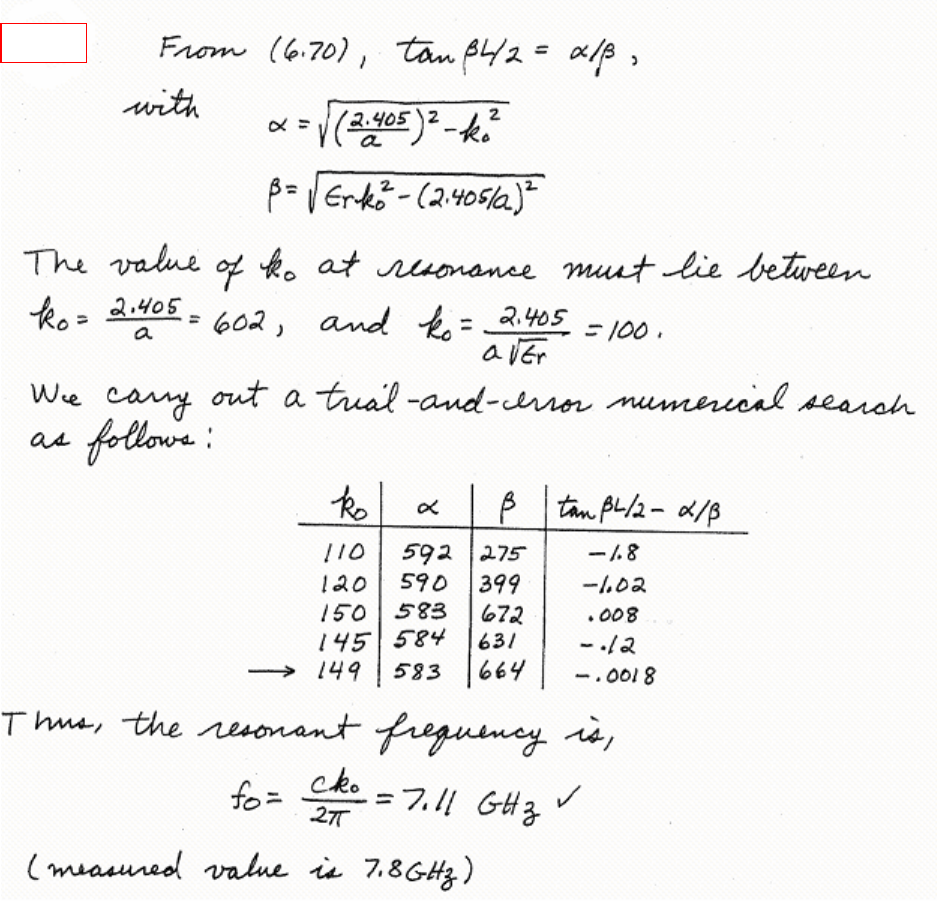 From (6.70), tan βL/2 = α/β,
with
α = √((2.405/a)² - k₀²)
β = √(εrk₀² - (2.405/a)²)
The value of k₀ at resonance must lie between
k₀ = 2.405/a = 602, and k₀ = 2.405/(a√εr) = 100.
We carry out a trial-and-error numerical search
as follows:
k₀ α β tan βL/2 - α/β
110 592 275 -1.8
120 590 399 -1.02
150 583 672 .008
145 584 631 -.12
→ 149 583 664 -.0018
Thus, the resonant frequency is,
f₀ = ck₀/2π = 7.11 GHz ✓
(measured value is 7.8GHz)